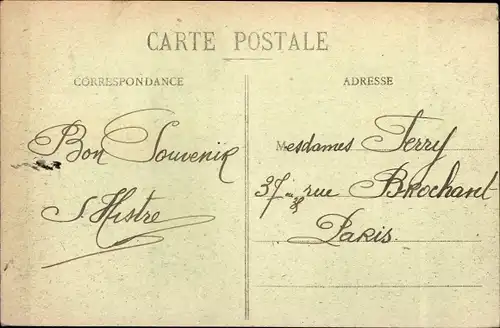 CARTE POSTALE
CORRESPONDANCE
Bon Souvenir
S. Histre
ADRESSE
Mesdames Ferry
37 rue Brochard
Paris.